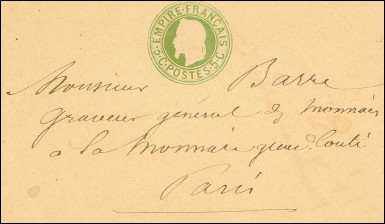 EMPIRE FRANÇAIS
5 C. POSTES 5 C.
Monsieur Barre
graveur général des monnaies
à la Monnaie quai Conti
Paris